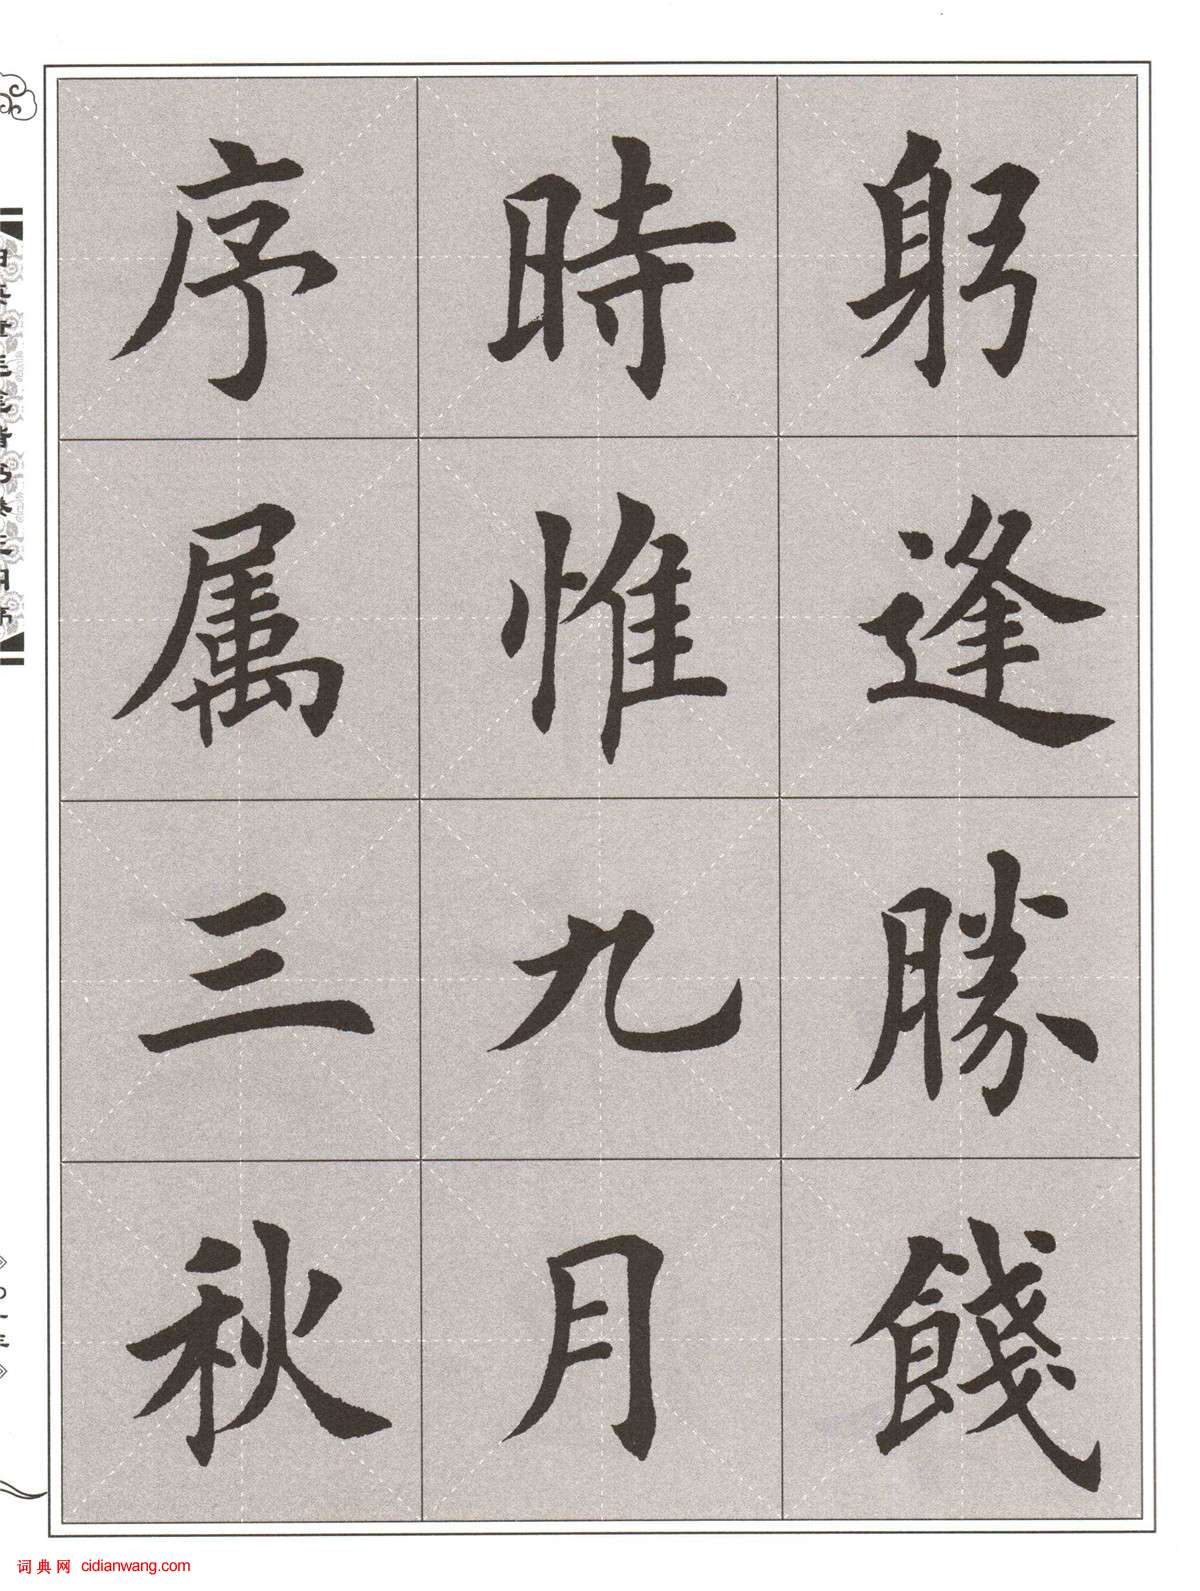 躬逢勝餞
時惟九月
序属三秋
词典网 cidianwang.com